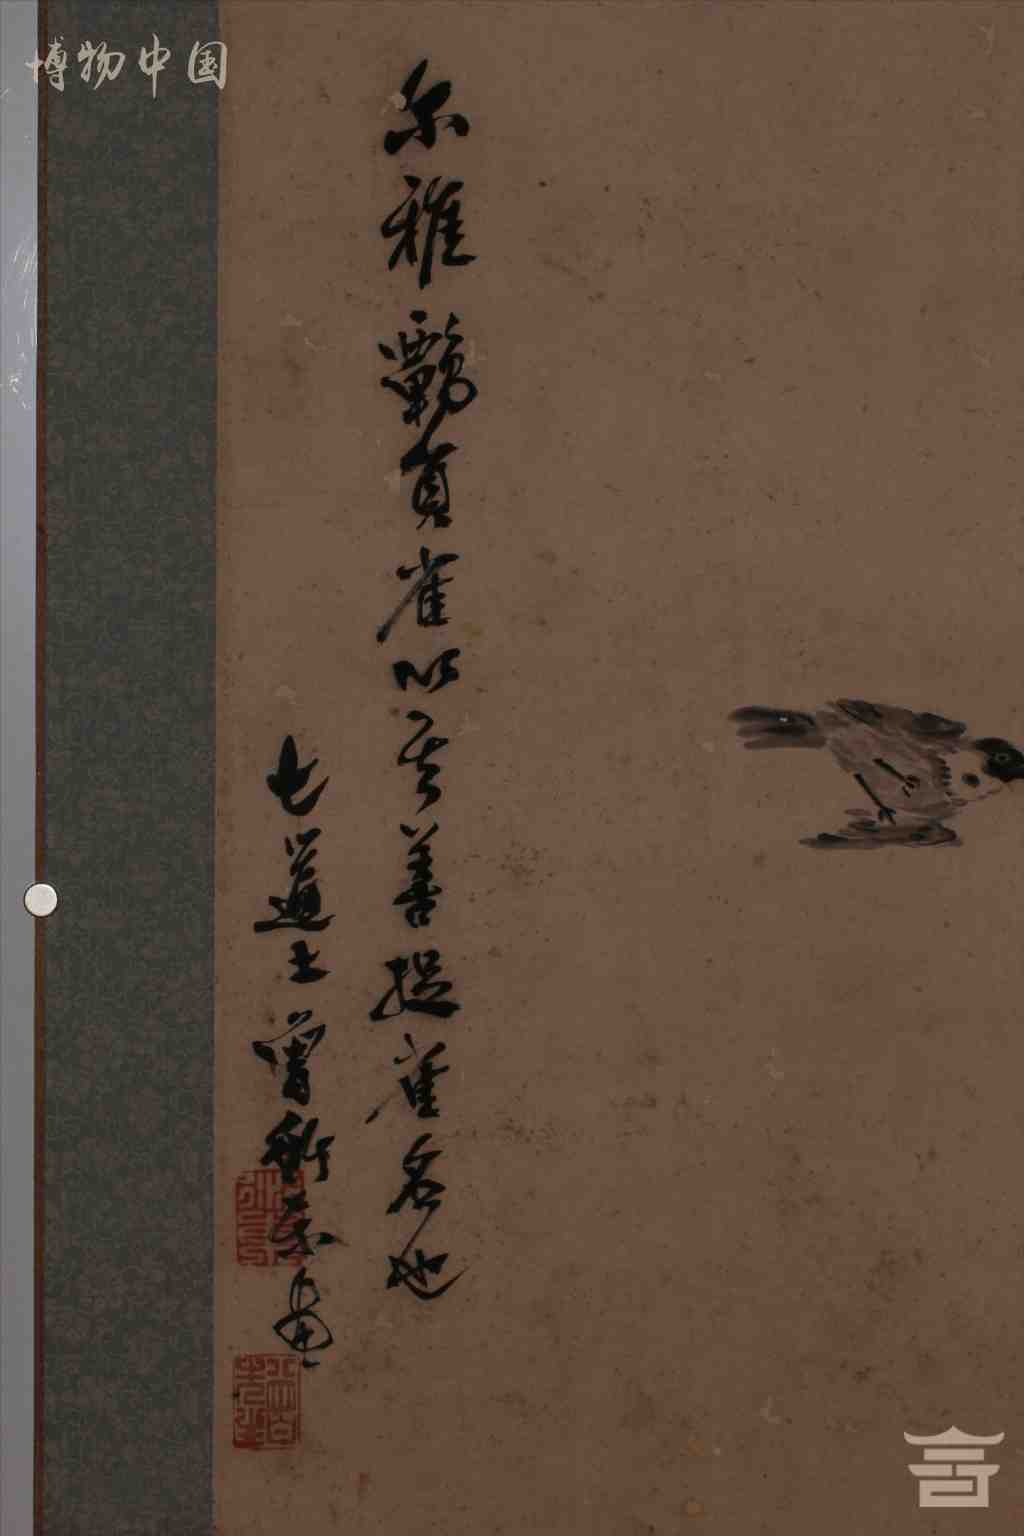 博物中国
尔雅鷣負雀以其善捉雀名也
七道士曾衍東畫